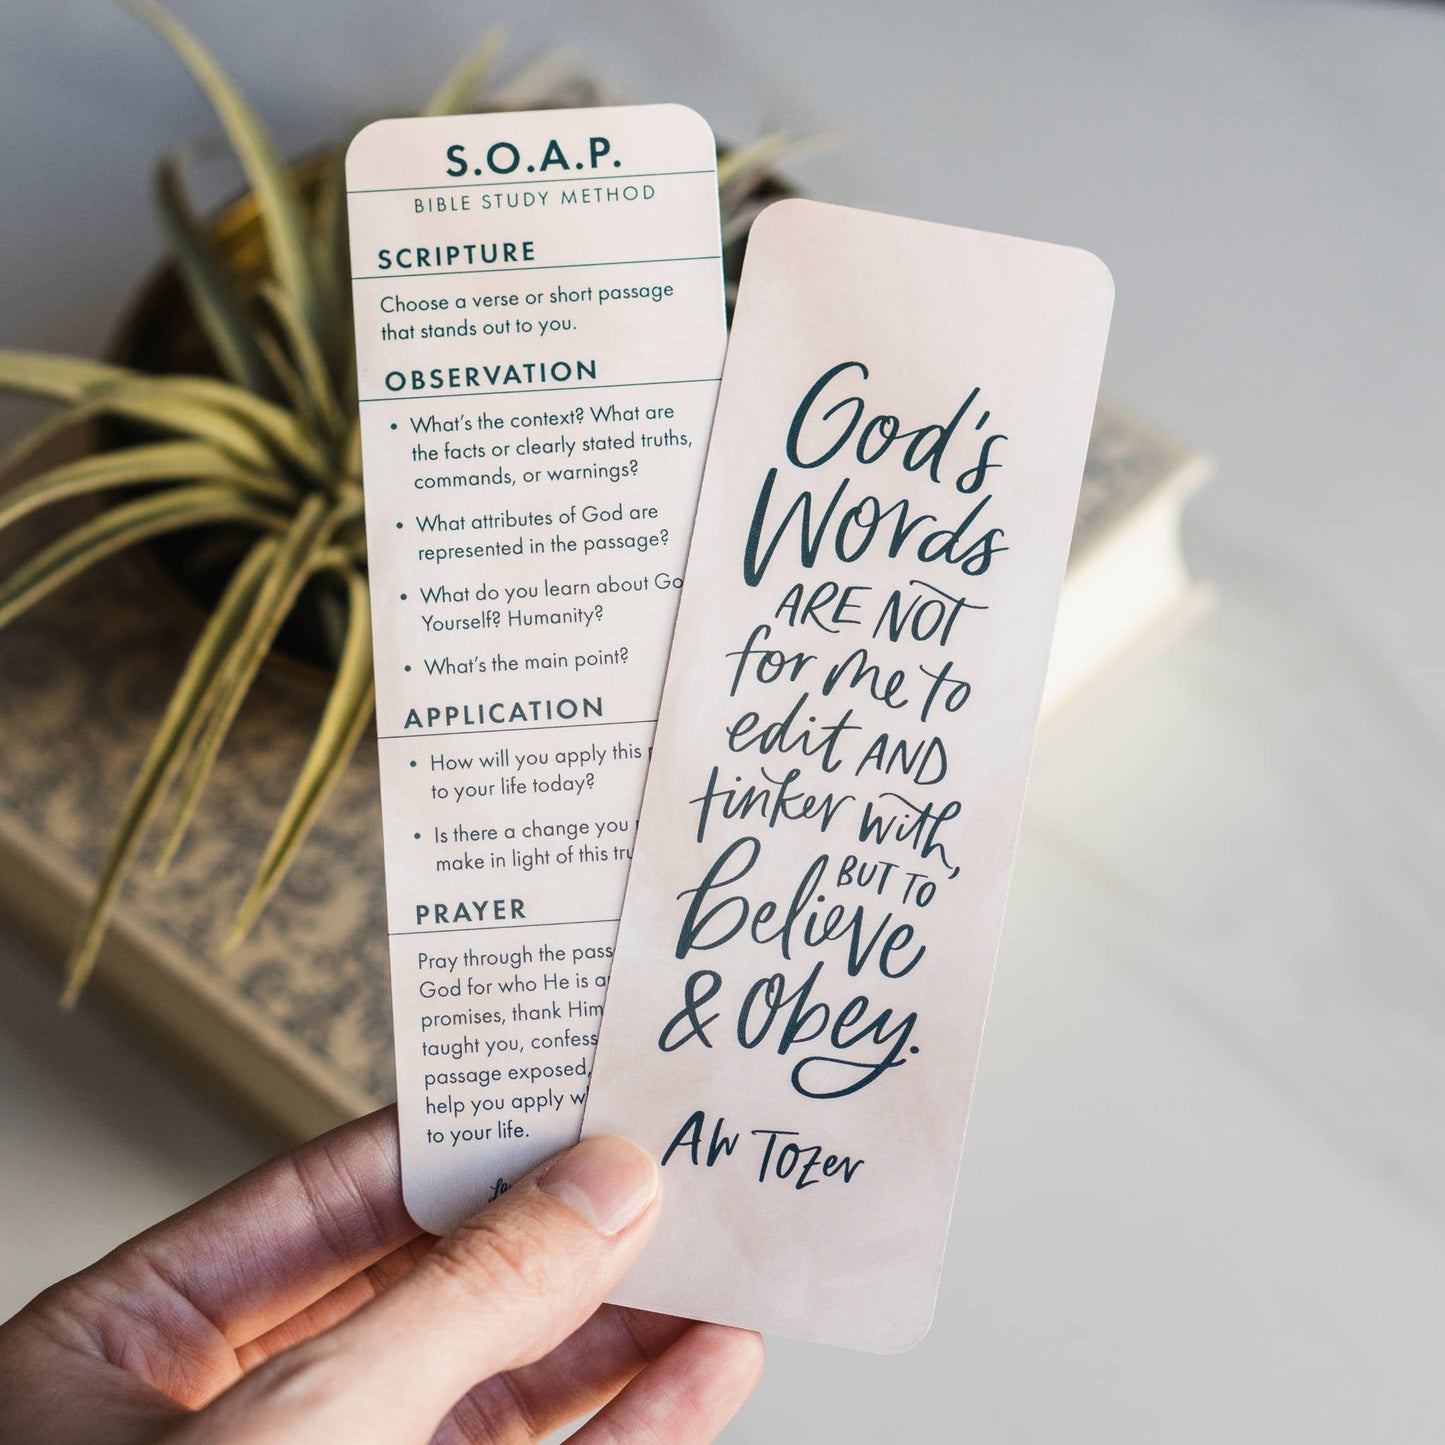 S.O.A.P.
BIBLE STUDY METHOD
SCRIPTURE
Choose a verse or short passage
that stands out to you.
OBSERVATION
• What's the context? What are
the facts or clearly stated truths,
commands, or warnings?
• What attributes of God are
represented in the passage?
• What do you learn about
Yourself? Humanity?
• What's the main point?
APPLICATION
• How will you apply this
to your life today?
• Is there a change you
make in light of this
PRAYER
Pray through the
God for who He is
promises, thank Him
taught you, confess
passage exposed,
help you apply
to your life.
God's
Words
ARE NOT
for me to
edit AND
tinker with,
BUT TO
believe
& obey.
AW TOZER